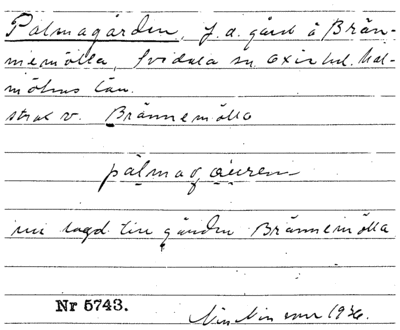 Palmagården, f. d. gård å Brän-
nemölla, Svidala sn, Oxie hd. Mal-
möhus län.
strax v. Brännemölla
pàlmag
nu lagd till gården Brännemölla
Nr 5743.
1936.